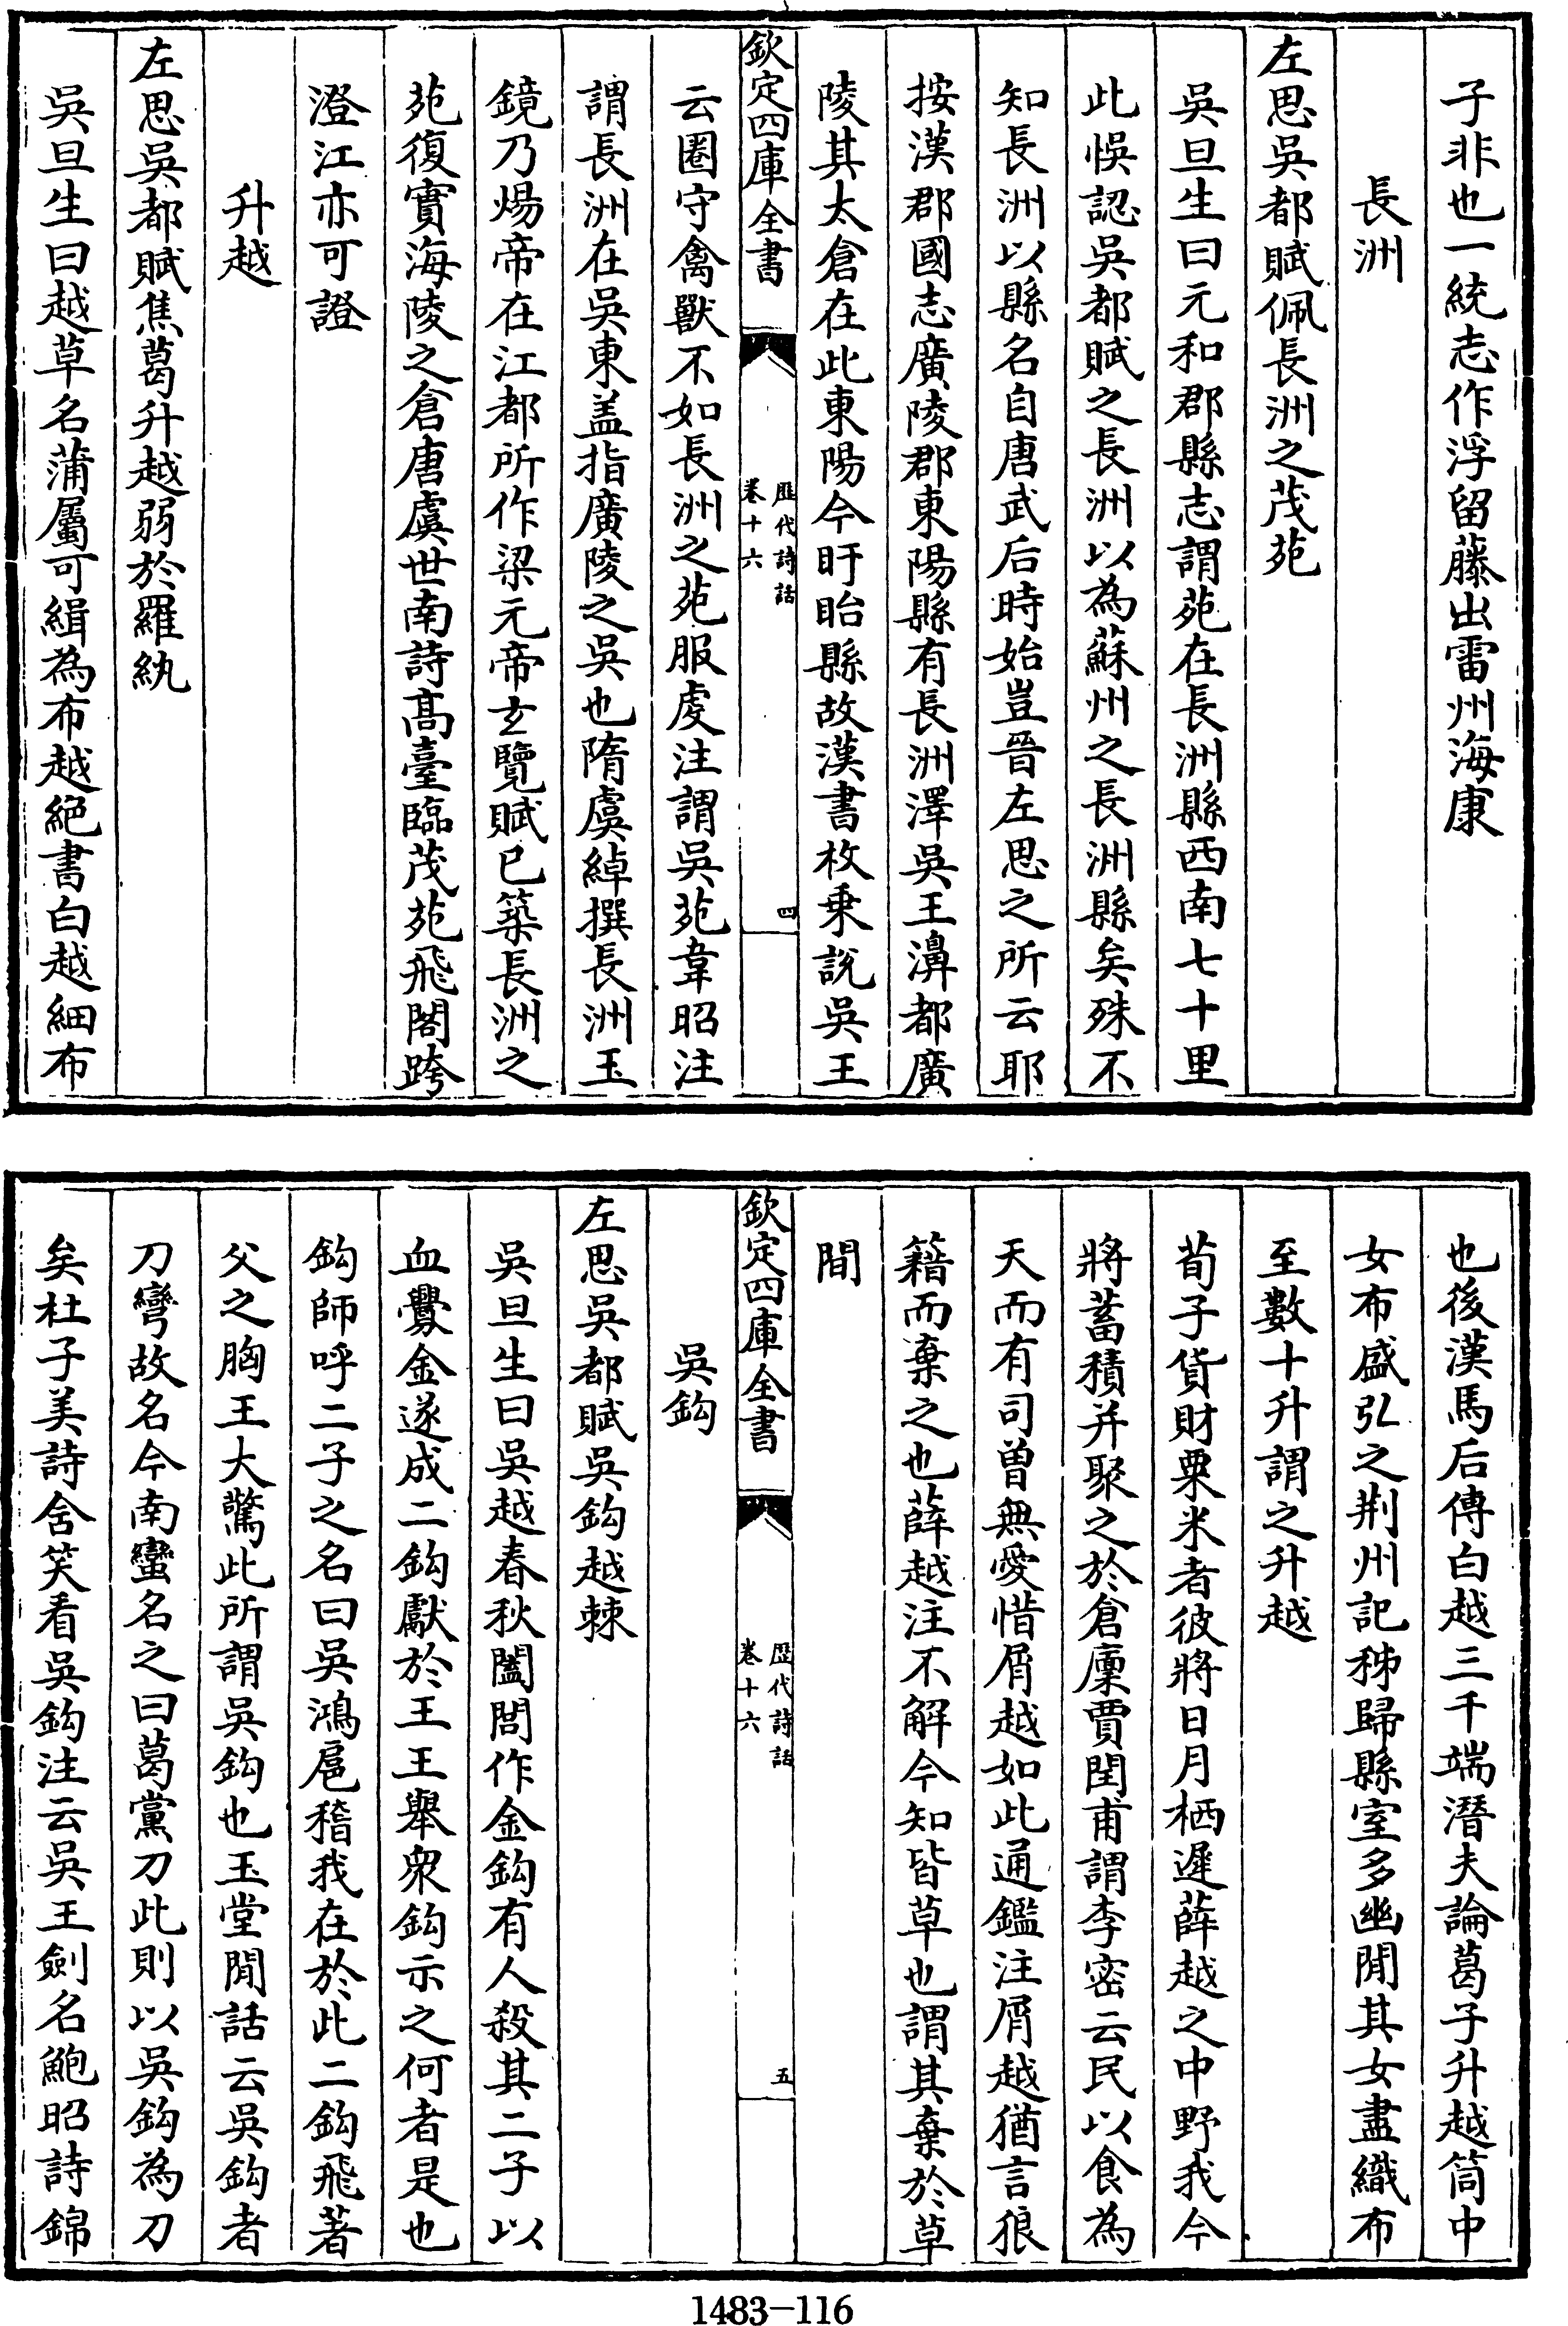 子非也一統志作浮留藤出雷州海康
長洲
左思吳都賦佩長洲之茂苑
吳旦生曰元和郡縣志謂苑在長洲縣西南七十里
此悞認吳都賦之長洲以為蘇州之長洲縣矣殊不
知長洲以縣名自唐武后時始豈晉左思之所云耶
按漢郡國志廣陵郡東陽縣有長洲澤吳王濞都廣
陵其太倉在此東陽今盱眙縣故漢書枚乗說吳王
欽定四庫全書
歷代詩話
卷十六
四
云圈守禽獸不如長洲之苑服虔注謂吳苑韋昭注
謂長洲在吳東盖指廣陵之吳也隋虞綽撰長洲玉
鏡乃煬帝在江都所作梁元帝玄覽賦已築長洲之
苑復實海陵之倉唐虞世南詩髙臺臨茂苑飛閣跨
澄江亦可證
升越
左思吳都賦焦葛升越弱於羅紈
吳旦生曰越草名蒲屬可緝為布越絕書白越細布
也後漢馬后傳白越三千端潛夫論葛子升越筒中
女布盛弘之荆州記秭歸縣室多幽閒其女盡織布
至數十升謂之升越
荀子貨財粟米者彼將日月栖遲薛越之中野我今
將蓄積并聚之於倉廩賈閏甫謂李密云民以食為
天而有司曾無愛惜屑越如此通鑑注屑越猶言狼
籍而棄之也薛越注不解今知皆草也謂其棄於草
間
欽定四庫全書
歷代詩話
卷十六
五
吳鈎
左思吳都賦吳鈎越棘
吳旦生曰吳越春秋闔閭作金鈎有人殺其二子以
血釁金遂成二鈎獻於王王舉衆鈎示之何者是也
鈎師呼二子之名曰吳鴻扈稽我在於此二鈎飛著
父之胸王大驚此所謂吳鈎也玉堂閒話云吳鈎者
刀彎故名今南蠻名之曰葛黨刀此則以吳鈎為刀
矣杜子美詩含笑看吳鈎注云吳王劍名鮑昭詩錦
1483-116